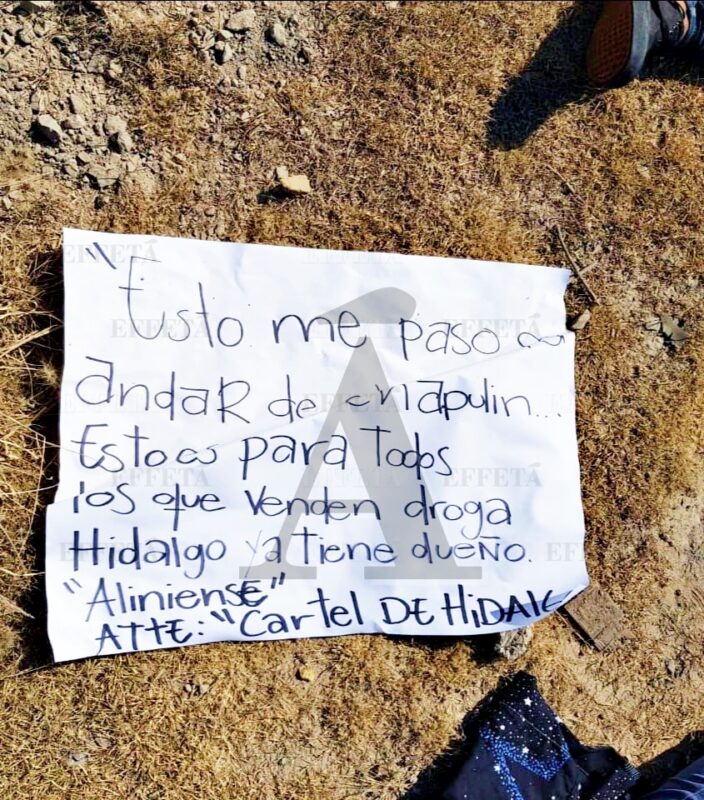 "Esto me paso
andaR de chapulin...
Esto es para Todos
los que venden droga
Hidalgo ya Tiene dueño.
"AliniensE"
ATTE: "Cartel DE HiDALG
EFFETÁ
Á